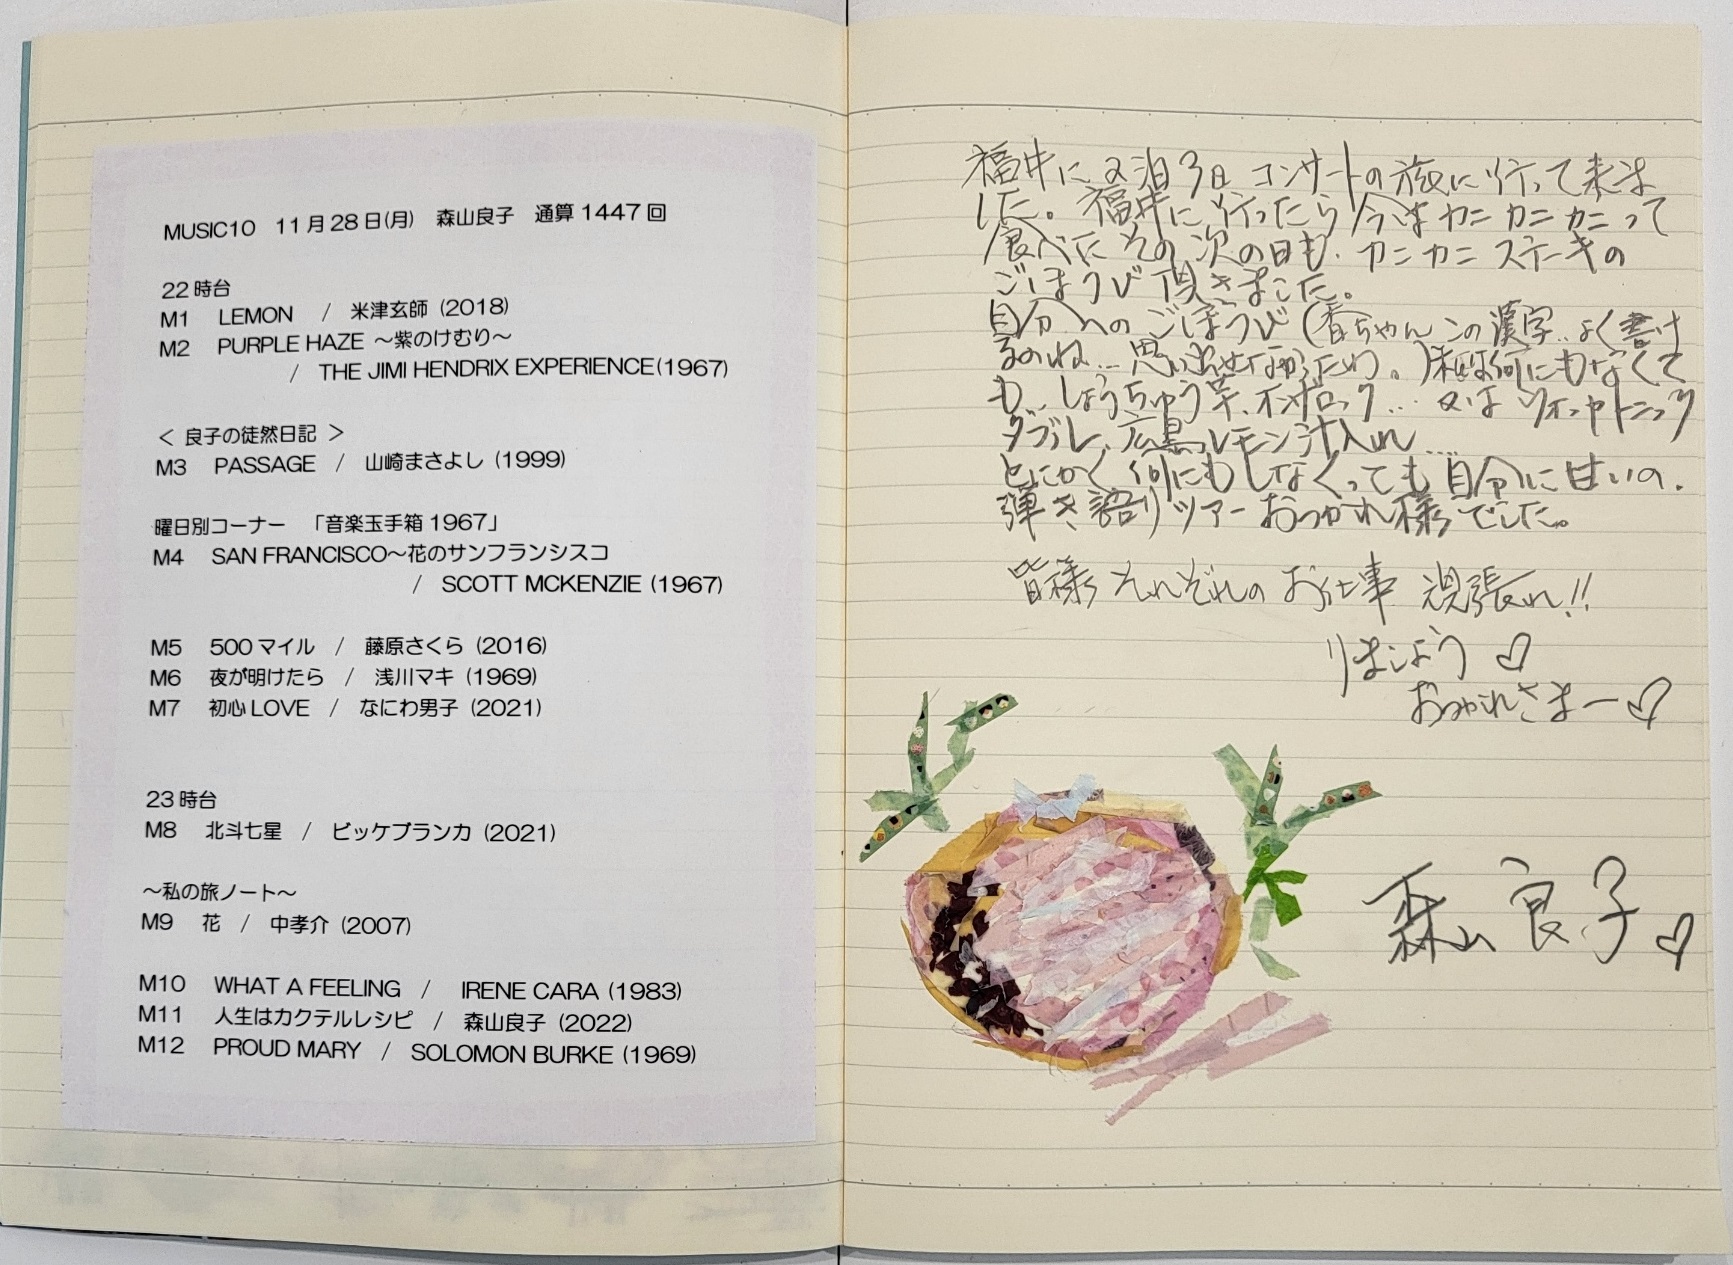 MUSIC10 11月28日(月) 森山良子 通算1447回
22時台
M1 LEMON / 米津玄師 (2018)
M2 PURPLE HAZE ～紫のけむり～
/ THE JIMI HENDRIX EXPERIENCE(1967)
＜ 良子の徒然日記 ＞
M3 PASSAGE / 山崎まさよし (1999)
曜日別コーナー 「音楽玉手箱1967」
M4 SAN FRANCISCO～花のサンフランシスコ
/ SCOTT MCKENZIE (1967)
M5 500マイル / 藤原さくら (2016)
M6 夜が明けたら / 浅川マキ (1969)
M7 初心LOVE / なにわ男子 (2021)
23時台
M8 北斗七星 / ビッケブランカ (2021)
～私の旅ノート～
M9 花 / 中孝介 (2007)
M10 WHAT A FEELING / IRENE CARA (1983)
M11 人生はカクテルレシピ / 森山良子 (2022)
M12 PROUD MARY / SOLOMON BURKE (1969)
福井に2泊3日 コンサートの旅に行って来ま
した。福井に行ったら今はカニ カニ カニって
食べにその次の日も、カニカニ ステーキの
ごほうび頂きました。
自分へのごほうび(春ちゃんこの漢字..よく書け
るのね... 思い出せなかったわ。)私は何にもなくて
も、しょうちゅう芋、オンザロック... 又はウォッカトニック
ダブル、広島レモン汁入れ...
とにかく何にもしなくっても自分に甘いの.
弾き語りツアーおつかれ様でした。
皆様それぞれのお仕事 頑張れ!!
りましょう ♡
おつかれさまー♡
森山良子♡